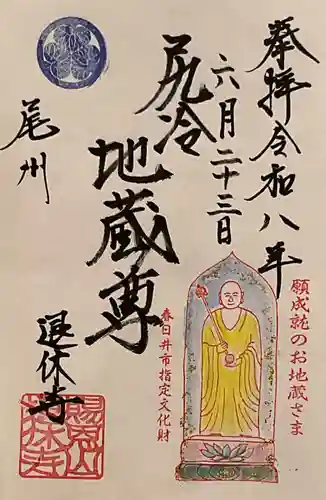 奉拝令和八年
六月二十三日
尻冷
地蔵尊
尾州
退休寺
願成就のお地蔵さま
春日井市指定文化財